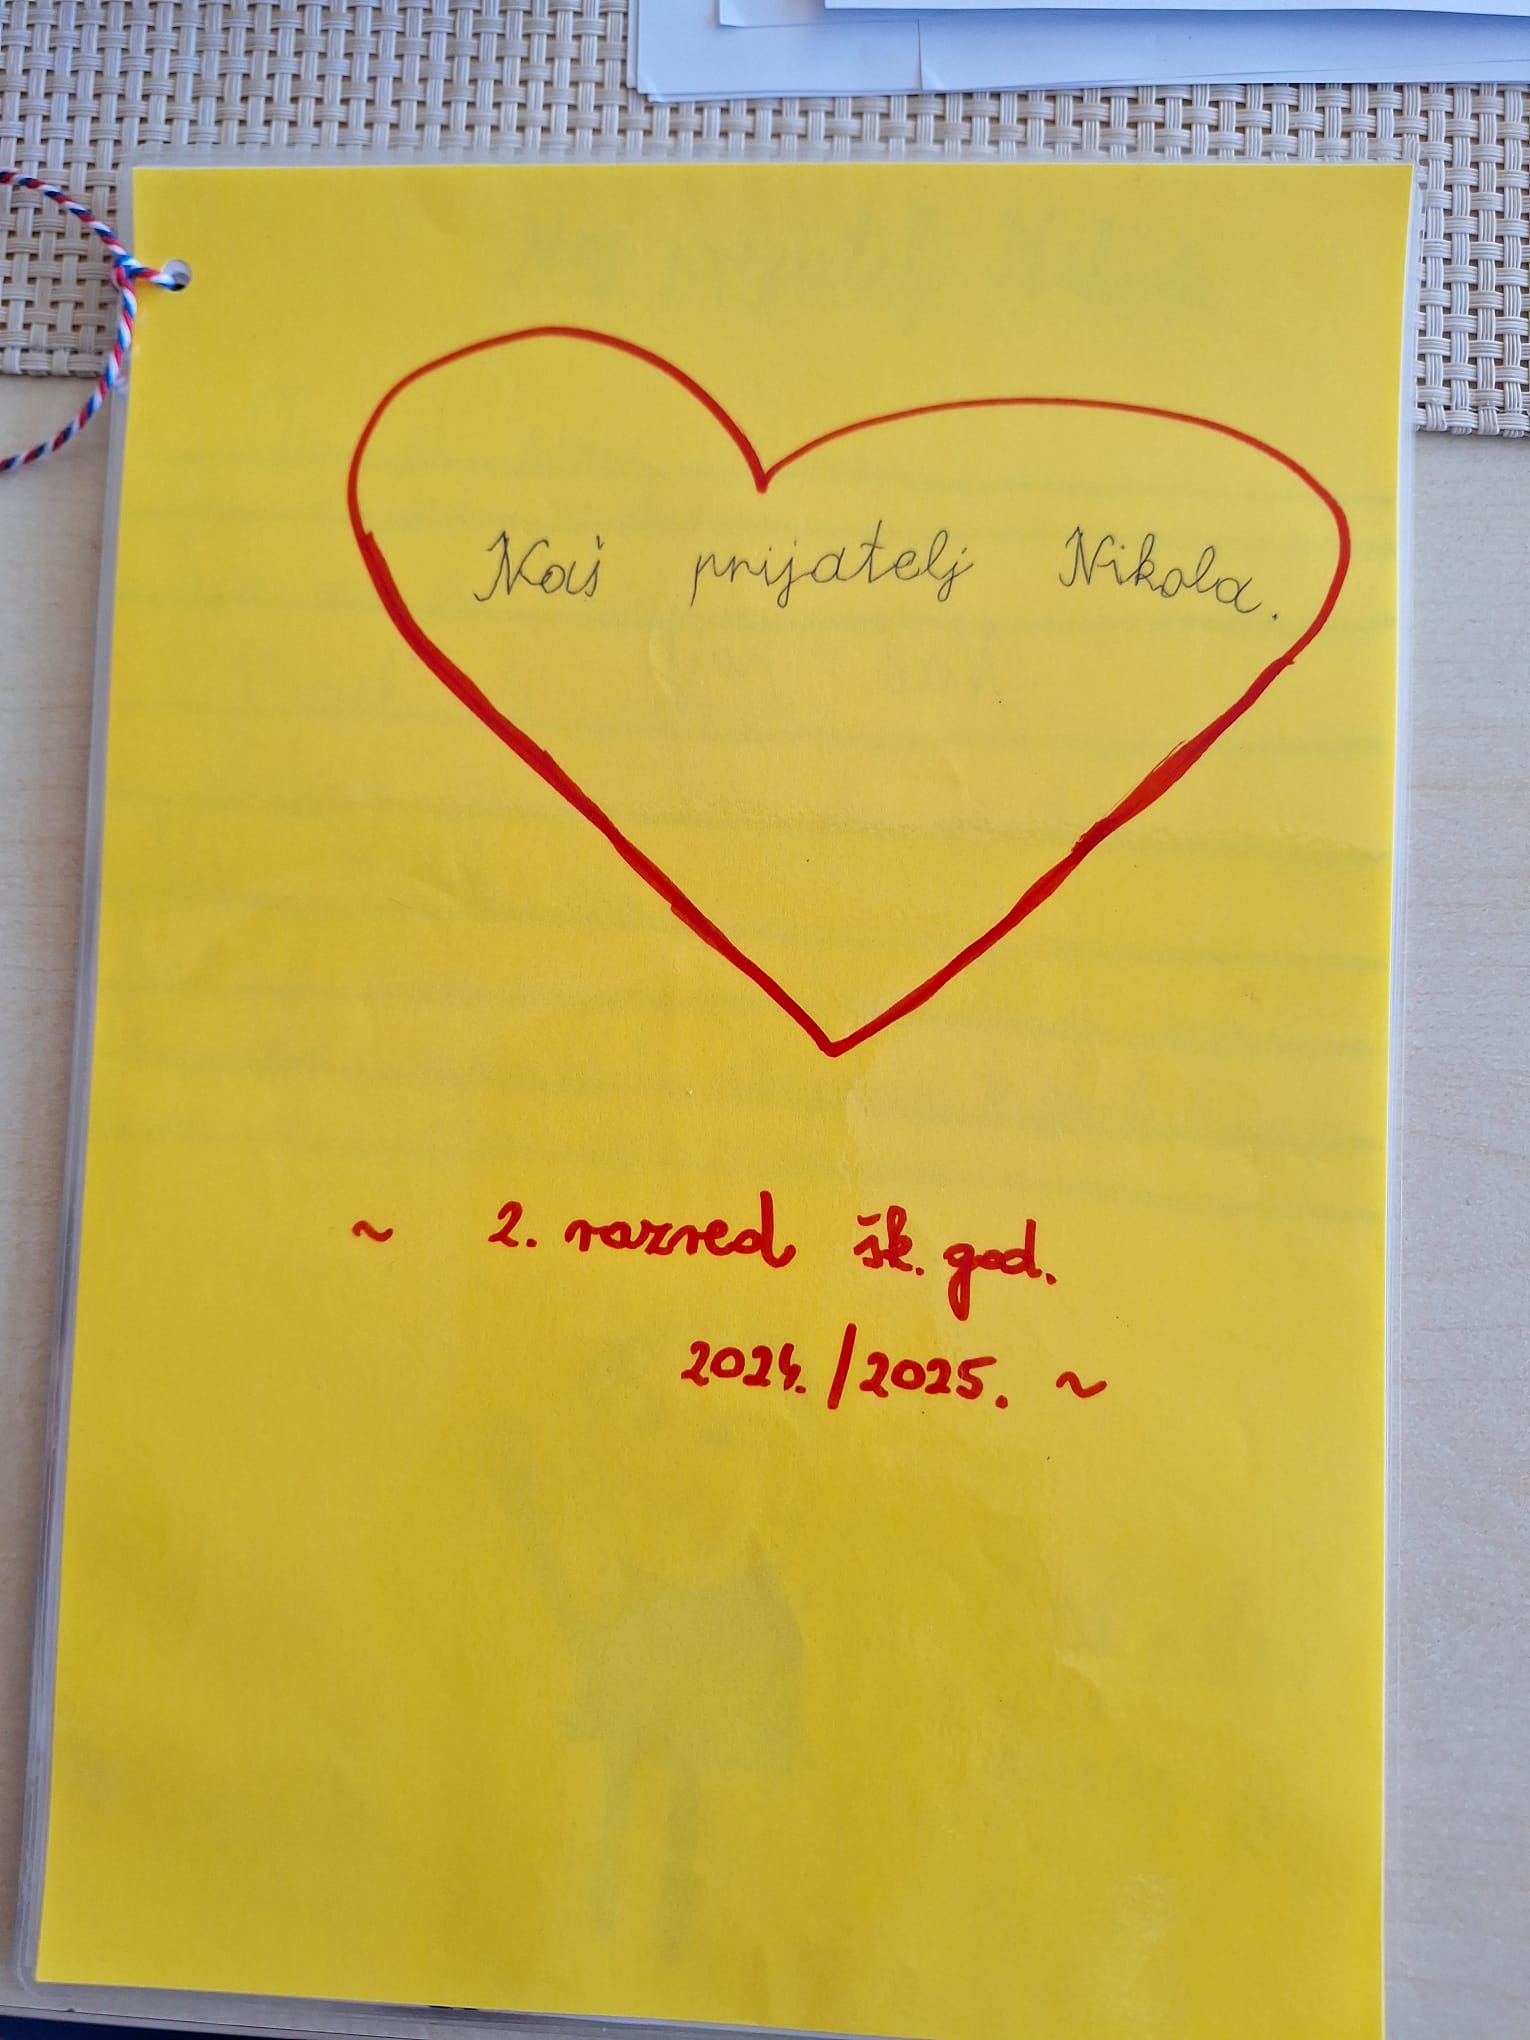 Naš prijatelj Nikola.
~ 2. razred šk. god.
2024./2025. ~